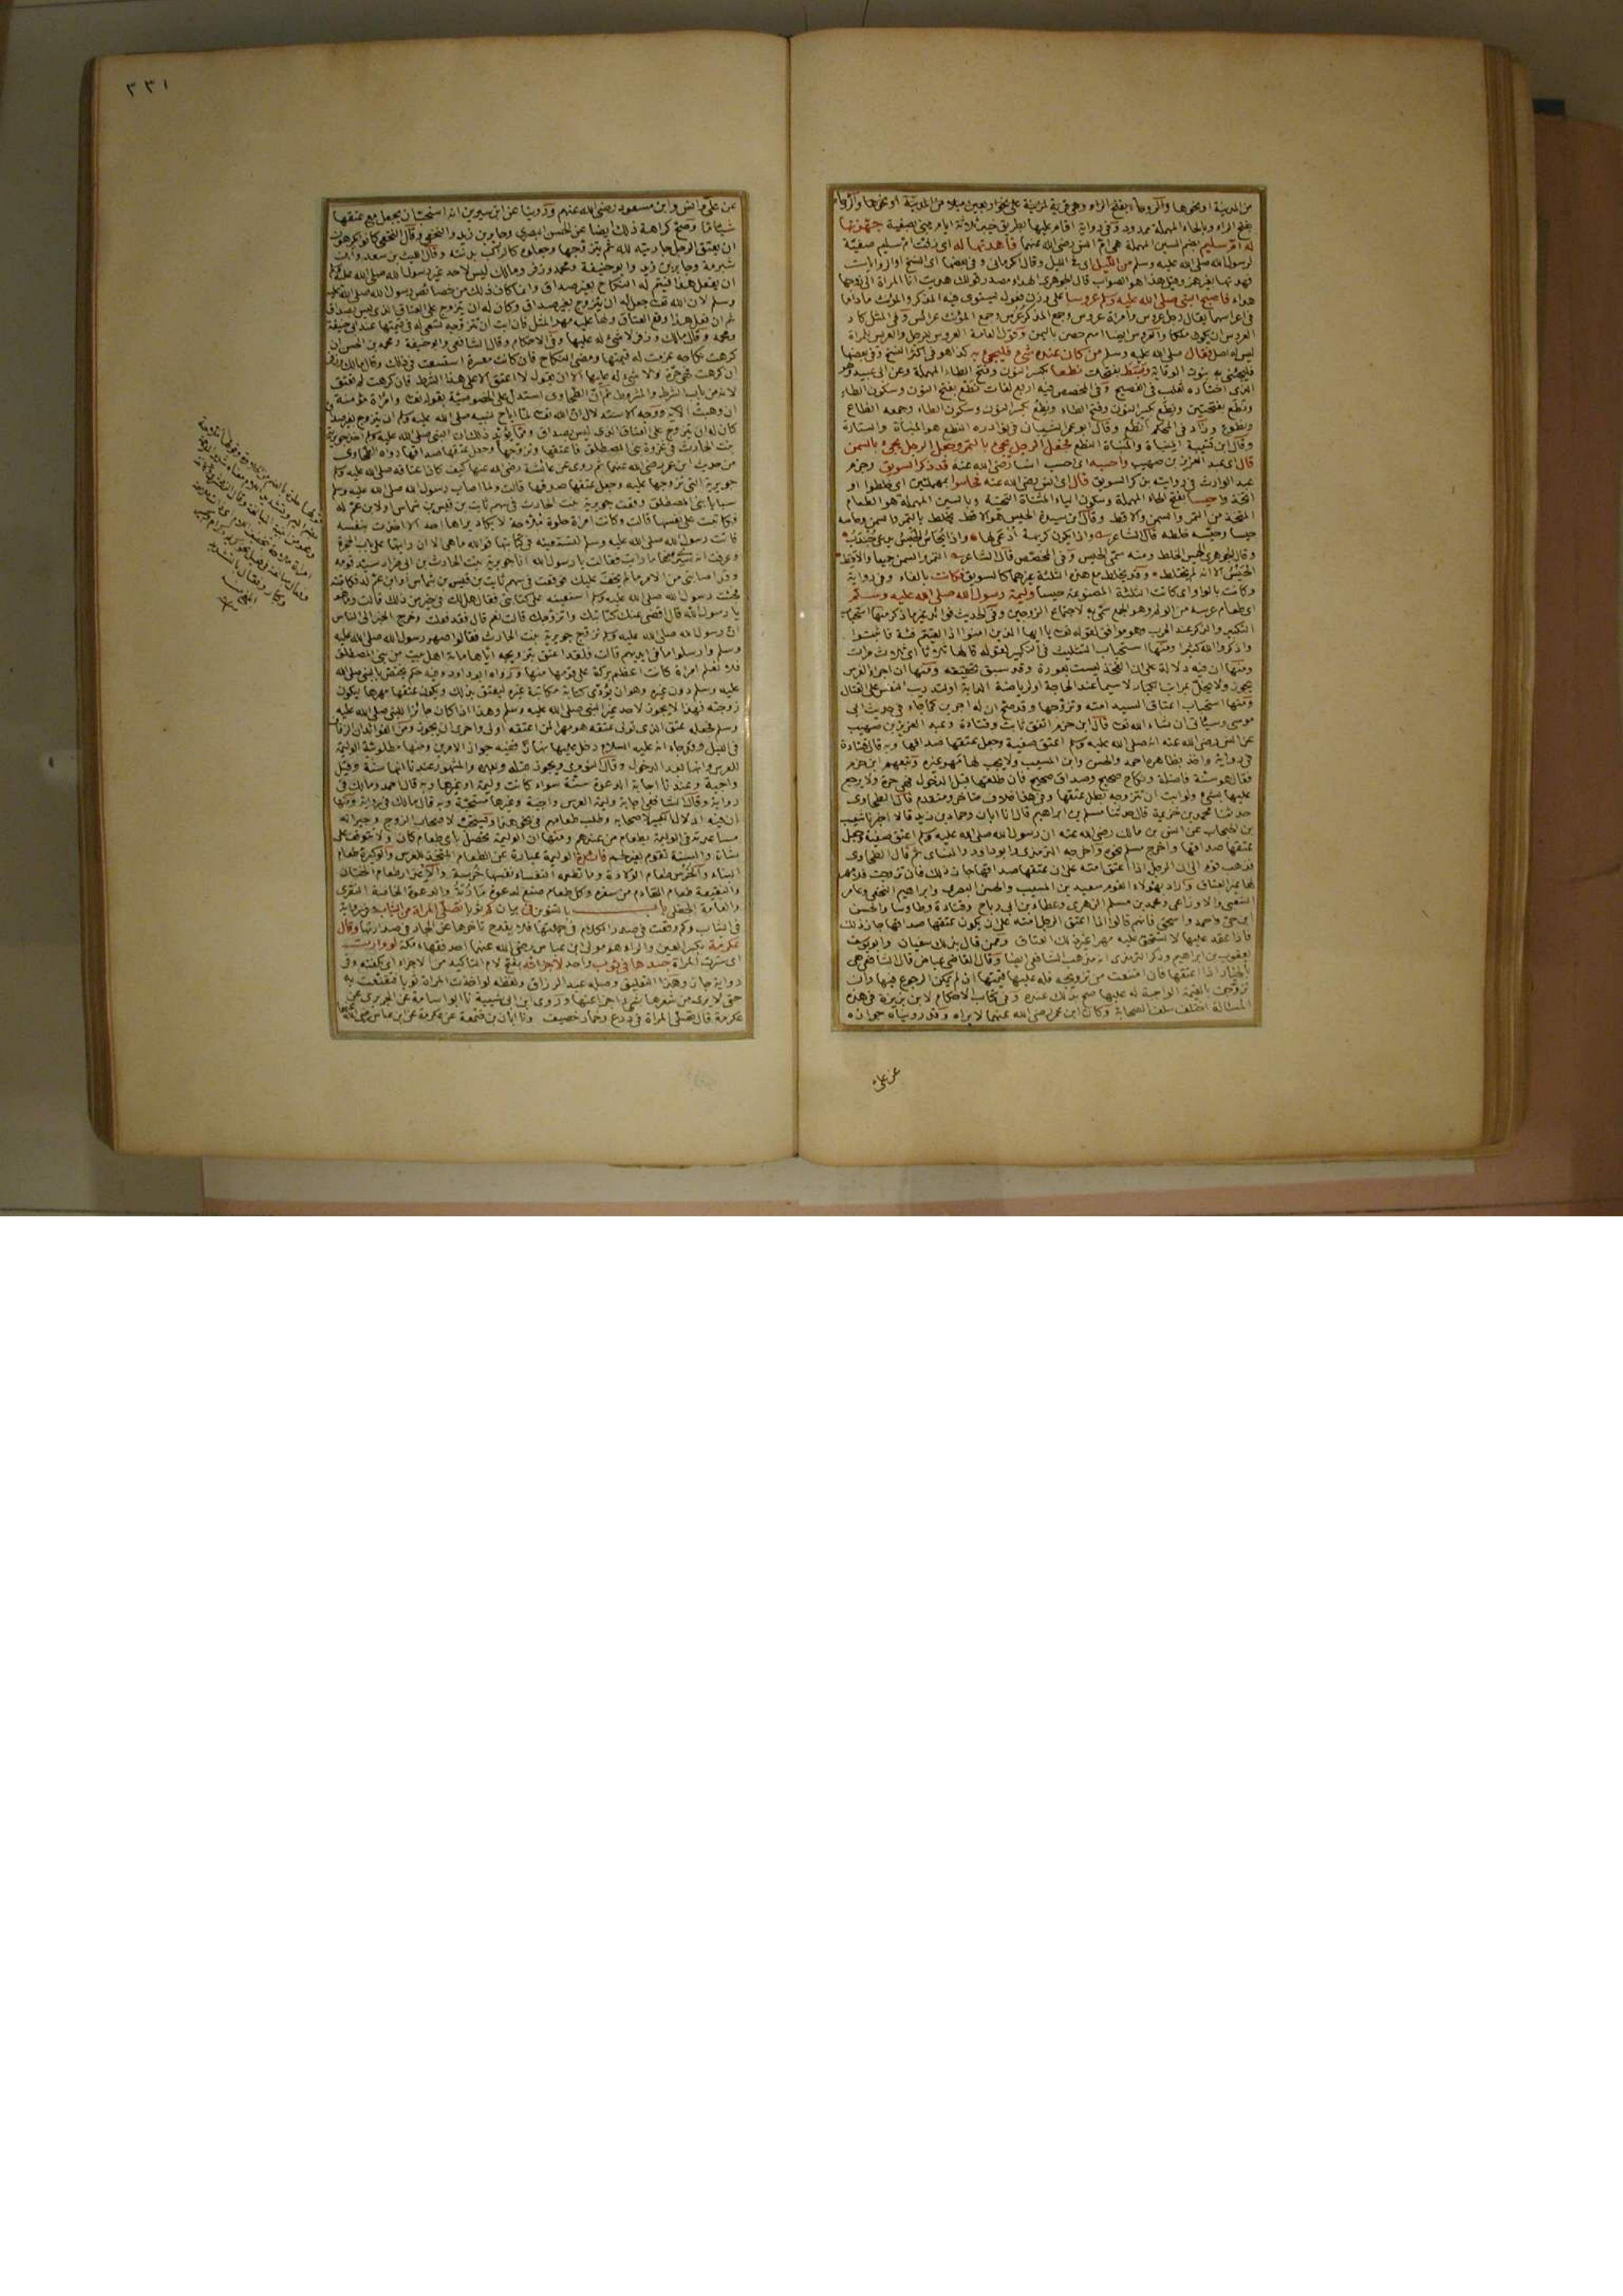 من المدينة او نحوها والروحاء بفتح الراء وهي قرية لمزينة على نحو اربعين ميلا من المدينة او نحوها
بفتح الراء وبالحاء المهملة ممدود وفي رواية اقام عليها بطريق خيبر ثلاثة ايام حتى بصفية جهزتها
له ام سليم بضم السين المهملة هي ام انس رضي الله عنهما فاهدتها له اي زفت ام سليم صفية
لرسول الله صلى الله عليه وسلم من الليل اي في الليل وقال الكرماني وفي بعضها اي النسخ او الروايات
فهدتها بغير همز وقيل هذا هو الصواب قال الجوهري الهداء مصدر قولك هديت انا المراة الى زوجها
هداء فاصبح النبي صلى الله عليه وسلم عروسا على وزن فعول يستوي فيه المذكر والمؤنث ما داما
في اعراسهما يقال رجل عروس وامراة عروس وجمع المذكر عرس وجمع المؤنث عرائس وفي المثل كاد
العروس ان يكون ملكا والعروس ايضا اسم حصن باليمن وقول العامة العروس للرجل والعروس للمراة
ليس له اصل فقال صلى الله عليه وسلم من كان عنده شيء فليجئ به كذا هو في اكثر النسخ وفي بعضها
فليجئني به بنون الوقاية وبسط بفتحات نطعا بكسر النون وفتح الطاء المهملة وعن ابي عبيد هو
الذي اختاره ثعلب في الفصيح وفي المخصص فيه اربع لغات نطع بفتح النون وسكون الطاء
ونطع بفتحتين ونطع بكسر النون وفتح الطاء ونطع بكسر النون وسكون الطاء وجمعه انطاع
ونطوع وزاد في المحكم انطع وقال ابو عمر الشيباني في نوادره النطع هو المبناة والستارة
وقال ابن قتيبة المبناة والمبناة النطع فجعل الرجل يجيء بالتمر وجعل الرجل يجيء بالسمن
قال اي عبد العزيز بن صهيب واحسبه اي احسب انسا رضي الله عنه قد ذكر السويق وجزم
عبد الوارث في روايته بذكر السويق قال اي انس رضي الله عنه فحاسوا بمهملتين اي خلطوا او
اتخذوا حيسا بفتح الحاء المهملة وسكون الياء المثناة التحتية وبالسين المهملة هو الطعام
المتخذ من التمر والسمن والاقط وقال ابن سيدة الحيس هو الاقط يخلط بالتمر والسمن وحاسه
حيسا وحيسه خلطه قال الشاعر واذا تكون كريهة ادعى لها واذا يحاس الحيس يدعى جندب
وقال الجوهري الحيس الخلط ومنه سمي الحيس وفي المخصص قال الشاعر التمر والسمن جميعا والاقط
الحيس الا انه لم يختلط وقد يخلط مع هذه الثلثة غيرها كالسويق فكانت بالفاء وفي رواية
وكانت بالواو اي كانت الثلثة المصنوعة حيسا وليمة رسول الله صلى الله عليه وسلم
اي طعام عرسه من الولم وهو الجمع سمي به لاجتماع الزوجين وفي الحديث فوائد غير ما ذكر منها استحباب
التكبير والذكر عند الحرب وهو موافق لقوله تعالى يا ايها الذين امنوا اذا لقيتم فئة فاثبتوا
واذكروا الله كثيرا ومنها استحباب التثليث في التكبير لقوله قالها ثلاثا اي ثلاث مرات
ومنها ان فيه دلالة على ان الفخذ ليست بعورة وقد سبق تحقيقه ومنها ان اجراء الفرس
يجوز ولا يخل بمراتب الكبار لا سيما عند الحاجة او لرياضة الدابة او لتدريب النفس على القتال
ومنها استحباب اعتاق السيد امته وتزوجها وقد صح ان له اجرين كما جاء في حديث ابي
موسى وسياتي ان شاء الله تعالى قال ابن حزم اتفق ثابت وقتادة وعبد العزيز بن صهيب
عن انس رضي الله عنه انه صلى الله عليه وسلم اعتق صفية وجعل عتقها صداقها وبه قال قتادة
في رواية واخذ بظاهره احمد والحسن وابن المسيب ولا يجب لها مهر غيره وتبعهم ابن حزم
فقال هو سنة فاضلة ونكاح صحيح وصداق صحيح فان طلقها قبل الدخول فهي حرة ولا يرجع
عليها بشيء ولو ابت ان تتزوجه بطل عتقها وفي هذا خلاف متاخر ومتقدم قال الطحاوي
حدثنا محمد بن خزيمة قال حدثنا مسلم بن ابراهيم قال انا ابان وحماد بن زيد قالا اخبرنا شعيب
بن الحبحاب عن انس بن مالك رضي الله عنه ان رسول الله صلى الله عليه وسلم اعتق صفية وجعل
عتقها صداقها واخرج مسلم نحوه واخرجه الترمذي وابو داود والنسائي ثم قال الطحاوي
فذهب قوم الى ان الرجل اذا اعتق امته على ان عتقها صداقها جاز ذلك فان تزوجت فلا مهر
لها غير العتاق واراد بهؤلاء القوم سعيد بن المسيب والحسن البصري وابراهيم النخعي وعامر
الشعبي والاوزاعي ومحمد بن مسلم الزهري وعطاء بن ابي رباح وقتادة وطاوسا والحسن
ابن حي واحمد واسحق فانهم قالوا اذا اعتق الرجل امته على ان يكون عتقها صداقها جاز ذلك
فاذا عقد عليها لا تستحق عليه مهرا غير ذلك العتاق وممن قال بذلك سفيان وابو يوسف
يعقوب بن ابراهيم وذكر الترمذي انه مذهب الشافعي ايضا وقال القاضي عياض قال الشافعي هي
بالخيار اذا اعتقها فان امتنعت من تزويجه فله عليها قيمتها ان لم يمكن الرجوع فيها وان
تزوجت بالقيمة الواجبة له عليها صح بذلك عنده وفي كتاب الاحكام لابن بزيزة في هذه
المسئالة اختلف سلف الصحابة وكان ابن عمر رضي الله عنهما لا يراه وقد روينا جوازه
عن علي
٣٣١
عن علي وانس وابن مسعود رضي الله عنهم وروينا عن ابن سيرين انه استحب ان يجعل مع عتقها
شيئا ما وصح كراهة ذلك ايضا عن الحسن البصري وجابر بن زيد والنخعي وقال النخعي كانوا يكرهون
ان يعتق الرجل جاريته لله ثم يتزوجها وجعلوه كالراكب بدنته وقال الليث بن سعد وابن
شبرمة وجابر بن زيد وابو حنيفة ومحمد وزفر ومالك ليس لاحد غير رسول الله صلى الله عليه وسلم
ان يفعل هذا فيتم له النكاح بغير صداق وانما كان ذلك من خصائص رسول الله صلى الله عليه
وسلم لان الله تعالى جعل له ان يتزوج بغير صداق وكان له ان يتزوج على العتاق الذي ليس بصداق
ثم ان فعل هذا وقع العتاق ولها عليه مهر المثل فان ابت ان تتزوجه تسعى له في قيمتها عند ابي حنيفة
ومحمد وقال مالك وزفر لا شيء له عليها وفي الاحكام وقال الشافعي وابو حنيفة ومحمد بن الحسن ان
كرهت نكاحه غرمت له قيمتها ومضى النكاح فان كانت معسرة استسعت في ذلك وقال مالك وزفر
ان كرهت فهي حرة ولا شيء له عليها الا ان يقول لا اعتق الا على هذا الشرط فان كرهت لم تعتق
لانه من باب الشرط والمشروط ثم ان الطحاوي استدل على الخصوصية بقوله تعالى وامراة مؤمنة
ان وهبت الاية ووجه الاستدلال ان الله تعالى لما اباح لنبيه صلى الله عليه وسلم ان يتزوج بغير صداق
كان له ان يتزوج على العتاق الذي ليس بصداق ومما يؤيد ذلك ان النبي صلى الله عليه وسلم اخذ جويرية
بنت الحارث في غزوة بني المصطلق فاعتقها وتزوجها وجعل عتقها صداقها رواه الطحاوي
من حديث ابن عمر رضي الله عنهما ثم روى عن عائشة رضي الله عنها كيف كان عتاقه صلى الله عليه وسلم
جويرية التي تزوجها عليه وجعل عتقها صدقها قالت لما اصاب رسول الله صلى الله عليه وسلم
سبايا بني المصطلق وقعت جويرية بنت الحارث في سهم ثابت بن قيس بن شماس او لابن عم له
فكاتبت على نفسها قالت وكانت امراة حلوة ملاحة لا يكاد يراها احد الا اخذت بنفسه
فاتت رسول الله صلى الله عليه وسلم لتستعينه في كتابتها فوالله ما هي الا ان رايتها على باب الحجرة
وعرفت انه سيرى منها ما رايت فقالت يا رسول الله انا جويرية بنت الحارث بن ابي ضرار سيد قومه
وقد اصابني من الامر ما لم يخف عليك فوقعت في سهم ثابت بن قيس بن شماس او ابن عم له فكاتبته
فجئت رسول الله صلى الله عليه وسلم استعينه على كتابتي فقال هل لك في خير من ذلك قالت وما هو
يا رسول الله قال اقضي عنك كتابتك واتزوجك قالت نعم قال فقد فعلت وخرج الخبر الى الناس
ان رسول الله صلى الله عليه وسلم تزوج جويرية بنت الحارث فقالوا صهر رسول الله صلى الله عليه
وسلم وارسلوا ما في ايديهم قالت فلقد اعتق بتزويجه اياها مائة اهل بيت من بني المصطلق
فلا نعلم امراة كانت اعظم بركة على قومها منها ورواه ابو داود وفيه حكم يختص بالنبي صلى الله
عليه وسلم دون غيره وهو ان يؤدي كتابة مكاتبة غيره لتعتق بذلك ويكون عتقها مهرها لتكون
زوجته فهذا لا يجوز لاحد غير النبي صلى الله عليه وسلم وهذا اذا كان جائزا للنبي صلى الله عليه
وسلم فجعله عتق الذي تولى عتقه هو مهرا لمن اعتقه اولى واحرى ان يجوز ومن الفوائد ان الزفاف
في الليل وقد جاء انه عليه السلام دخل عليها نهارا ففيه جواز الامرين ومنها مطلوبية الوليمة
للعرس وانها بعد الدخول وقال النووي ويجوز قبله وبعده والمشهور عندنا انها سنة وقيل
واجبة وعندنا اجابة الدعوة سنة سواء كانت وليمة او غيرها وبه قال احمد ومالك في
رواية وقال الشافعي اجابة وليمة العرس واجبة وغيرها مستحبة وبه قال مالك في رواية ومنها
ان فيه ادلال الكبير لاصحابه وطلب طعامهم في نحو هذا ويستحب لاصحاب الزوج وجيرانه
مساعدته في الوليمة بطعام من عندهم ومنها ان الوليمة تحصل باي طعام كان ولا تتوقف على
شاة والسنة تقوم بغير لحم فائدة الوليمة عبارة عن الطعام المتخذ للعرس والوكيرة طعام
البناء والخرس طعام الولادة وما تطعمه النفساء نفسها خرسة والاعذار طعام الختان
والنقيعة طعام القادم من سفره وكل طعام صنع لدعوة مادبة والدعوة الخاصة النقرى
والعامة الجفلى باب بالتنوين في بيان كم ثوبا تصلي المراة من الثياب وفي رواية
في الثياب وكم وقعت في صدر الكلام في جملتها فلا يقدح تاخرها عن الجار في صدارتها وقال
عكرمة بكسر العين والراء هو مولى ابن عباس رضي الله عنهما احد فقهاء مكة لو وارت
اي سترت المراة جسدها في ثوب واحد لاجزاته بفتح لام التاكيد من الاجزاء اي يكفيه وفي
رواية جاز وهذا التعليق وصله عبد الرزاق ولفظه لو اخذت المراة ثوبا فتقنعت به
حتى لا يرى من شعرها شيء اجزا عنها وروى ابن ابي شيبة ثنا ابو اسامة عن الجريري عن
عكرمة قال تصلي المراة في درع وخمار خصيف وثنا ابان بن صمعة عن عكرمة عن ابن عباس رضي الله عنهما